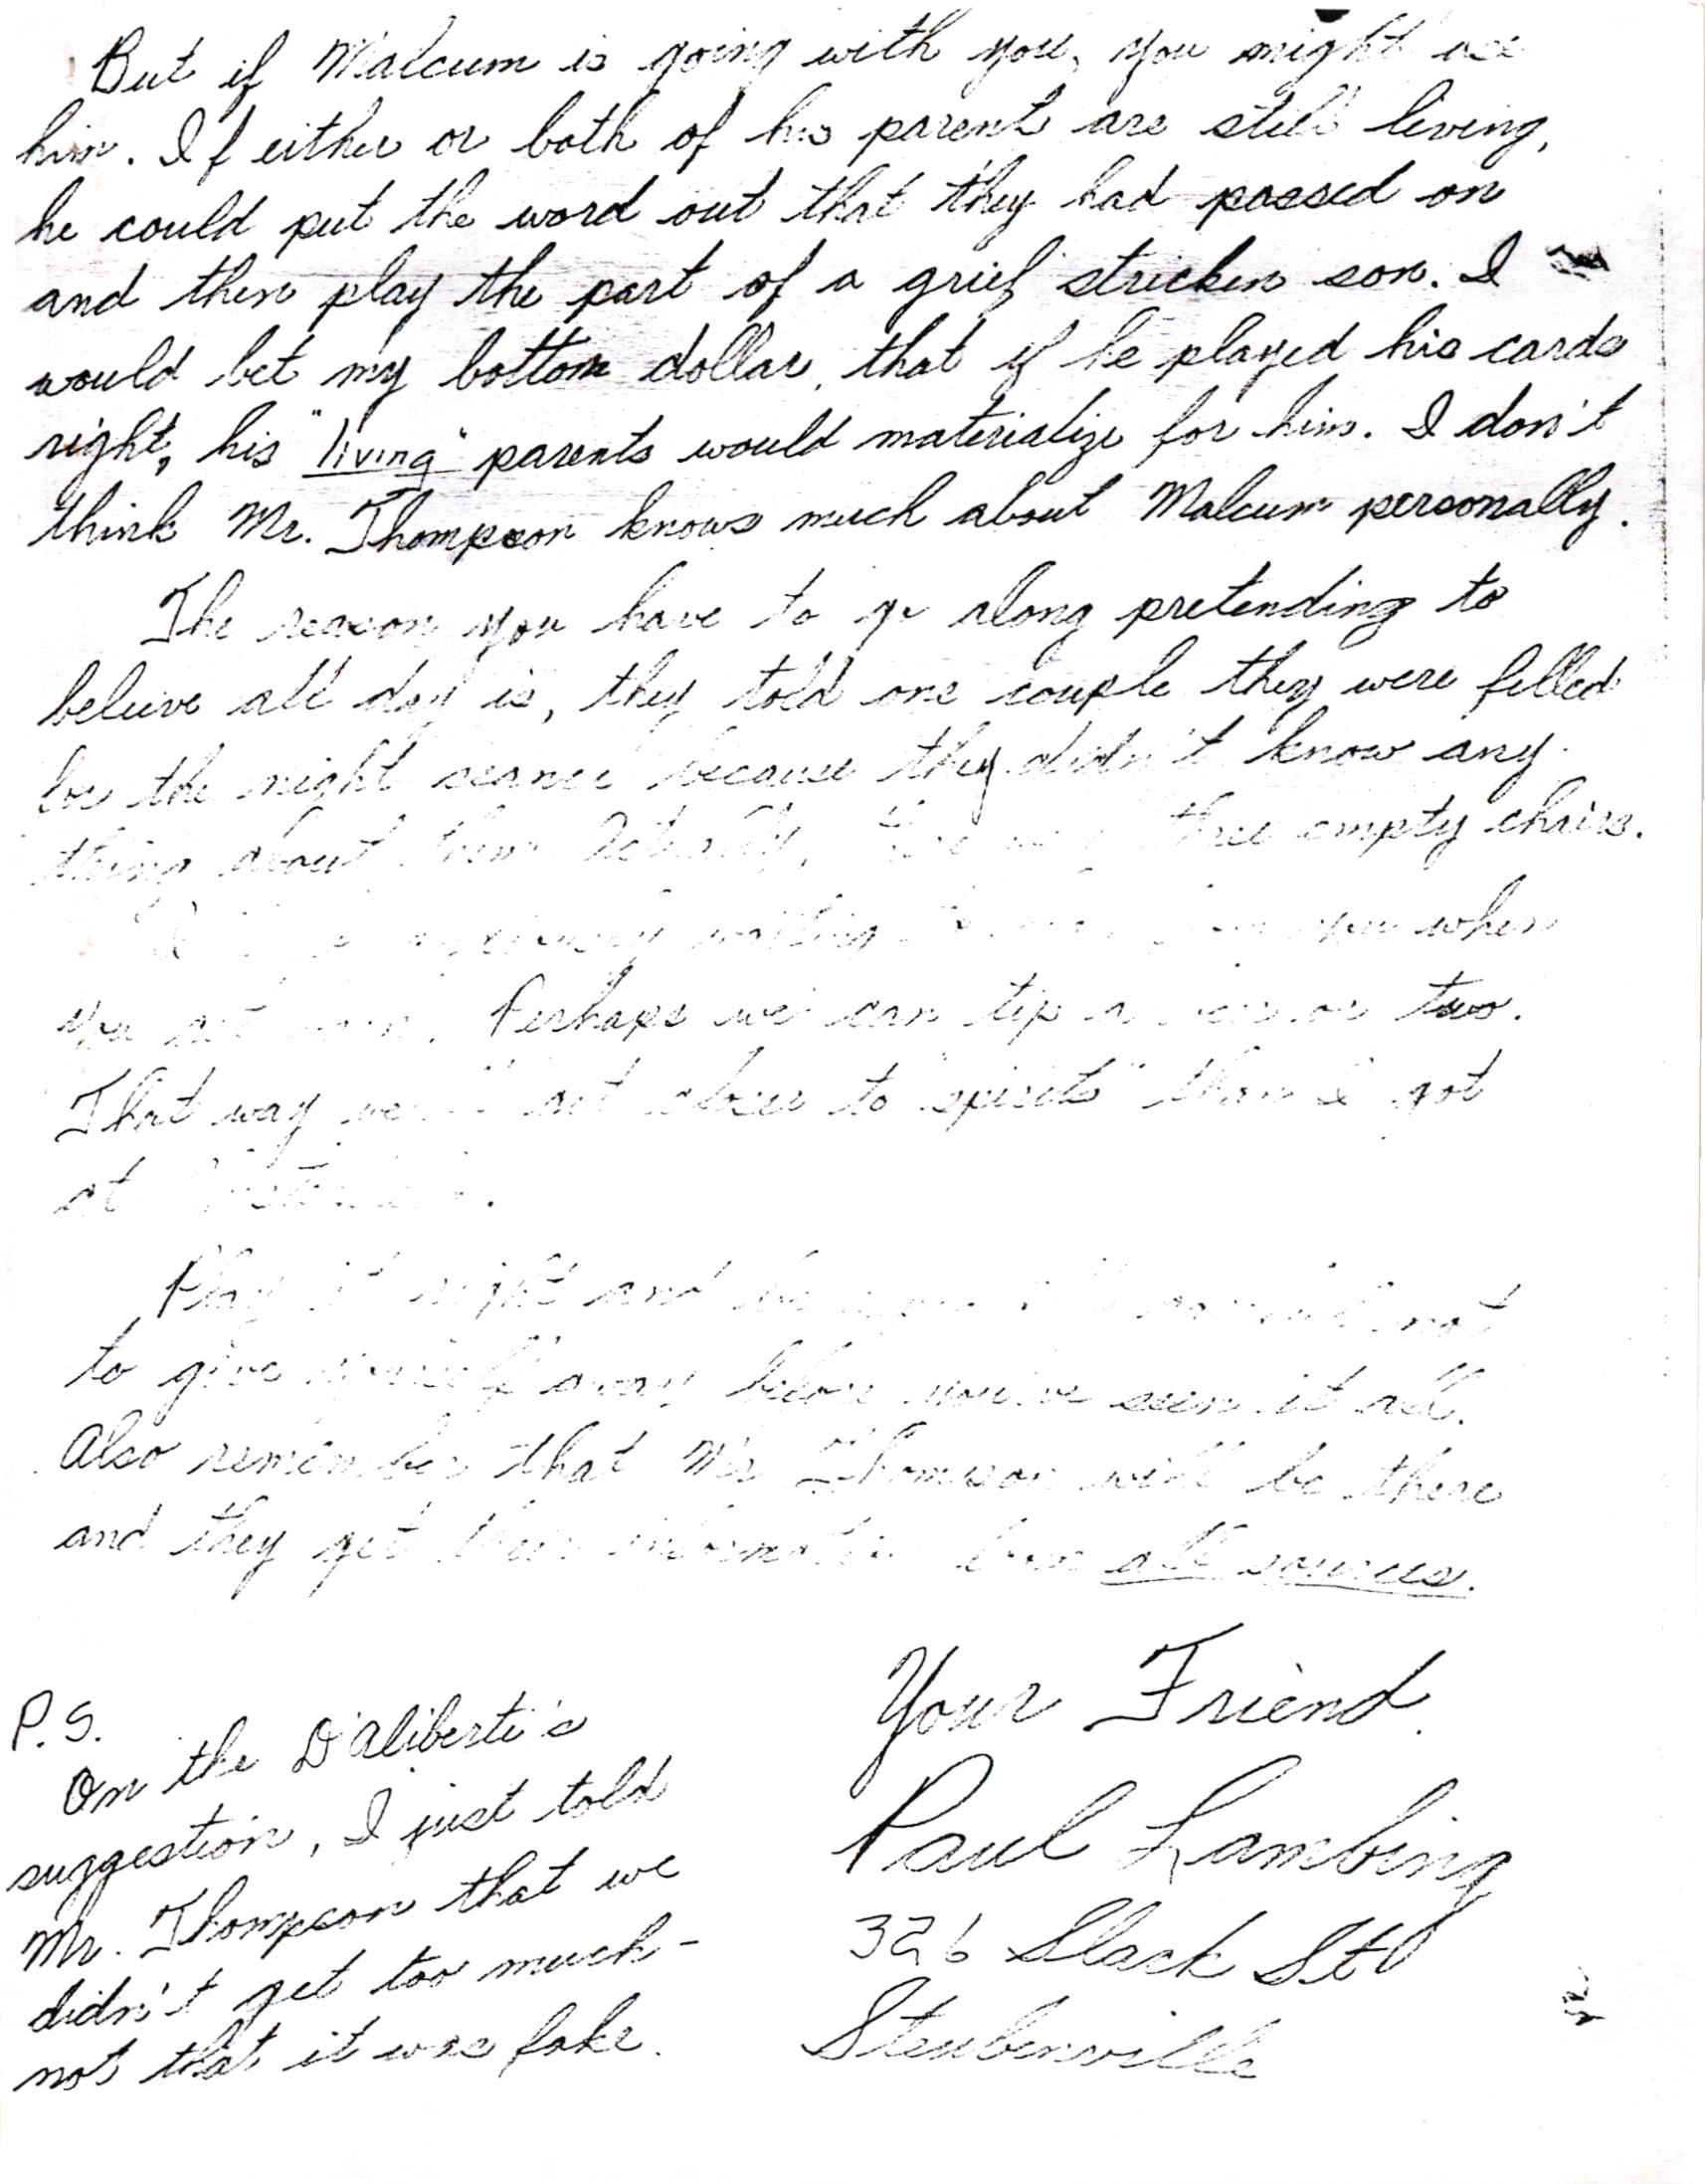 But if Malcum is going with you, you might use
him. If either or both of his parents are still living,
he could put the word out that they had passed on
and then play the part of a grief stricken son. I
would bet my bottom dollar, that if he played his cards
right, his "living" parents would materialize for him. I don't
think Mr. Thompson knows much about Malcum personally.
The reason you have to go along pretending to
beleive all day is, they told one couple they were filled
for the night seance because they didn't know any-
thing about them. Actually, three empty chairs.
I waiting you when
you Perhaps we can tip a or two.
That way we'll get closer to "spirits" than I got
at
Play it right and not
to give yourself away before you've seen it all.
Also remember that Mr. Thompson will be there
and they get their information from all sources.
Your Friend
Paul Lambing
326 Slack St
Steubenville
P.S.
On the D'aliberti's
suggestion, I just told
Mr. Thompson that we
didn't get too much -
not that it was fake.